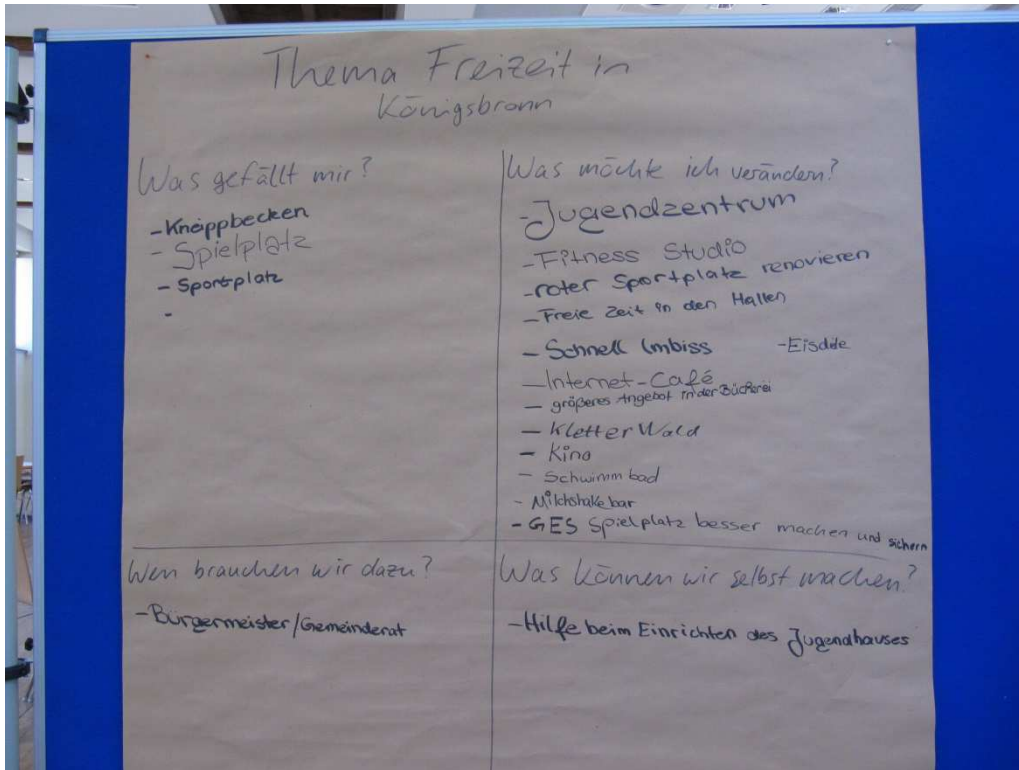 Thema Freizeit in
Königsbronn
Was gefällt mir?
-Knöppbecken
- Spielplatz
- Sportplatz
-
Was möchte ich verändern?
-Jugendzentrum
-Fitness Studio
-roter Sportplatz renovieren
-Freie Zeit in den Hallen
- Schnell Imbiss -Eisdile
-Internet-Café
- größeres Angebot in der Bücherei
- Kletter Wald
- Kino
- Schwimmbad
- Milchshakebar
- GES Spielplatz besser machen und sichern
Wen brauchen wir dazu?
-Bürgermeister/Gemeinderat
Was können wir selbst machen?
-Hilfe beim Einrichten des Jugendhauses